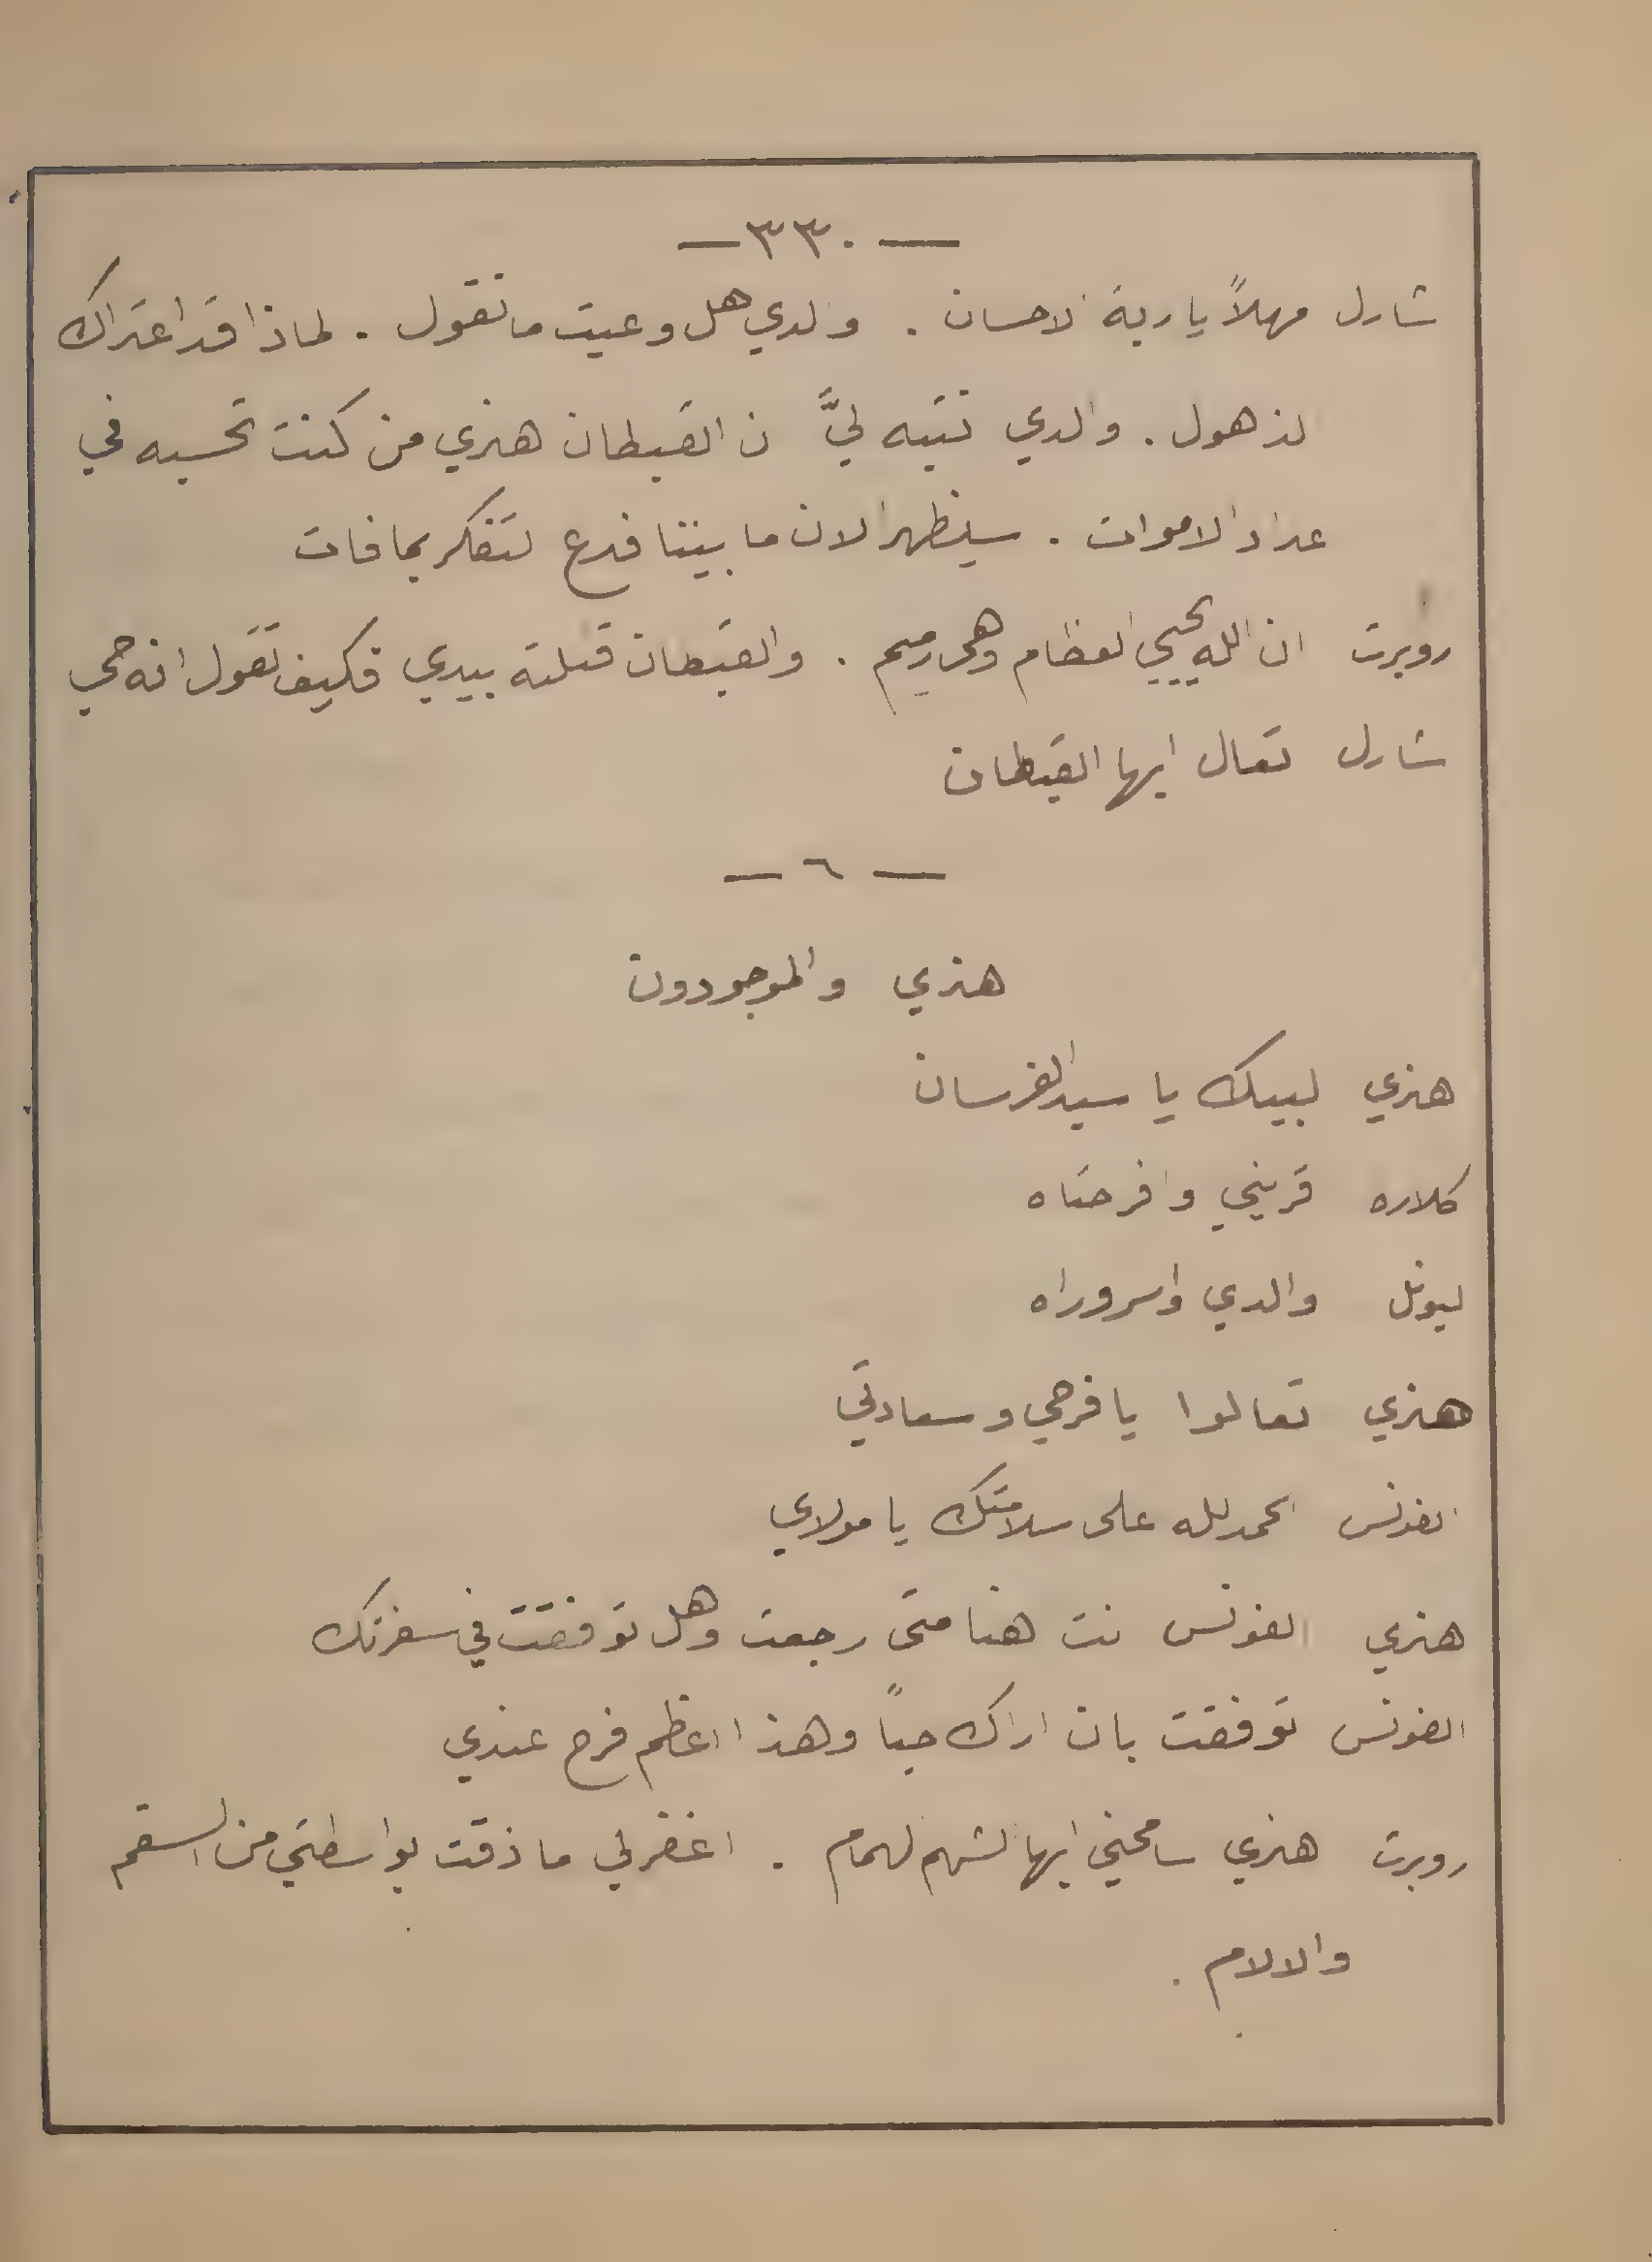 — ٣٣٠ —
شارل مهلاً يا ربة الاحسان . والدي هل وعيت ما تقول . لماذا قد اعتراك
الذهول . والدي تنبه ليَّ ان القبطان هنري من كنت تحسبه في
عداد الاموات . سيظهر الان ما بيننا فدع لتفكر بما فات
روبرت ان الله يحيي العظام وهي رميم . والقبطان قتلته بيدي فكيف تقول انه حي
شارل تعال ايها القبطان
— ٦ —
هنري والموجودون
هنري لبيك يا سيد الفرسان
كلاره قريني وافرحتاه
ليونل والدي واسروراه
هنري تعالوا يا فرحي وسعادتي
الفونس الحمد لله على سلامتك يا مولاي
هنري الفونس انت هنا متى رجعت وهل توفقت في سفرتك
الفونس توفقت بان اراك حياً وهذا اعظم فرح عندي
روبرت هنري سامحني ايها الشهم الهمام . اغفر لي ما ذقت بواسطتي من السقم
والالام .